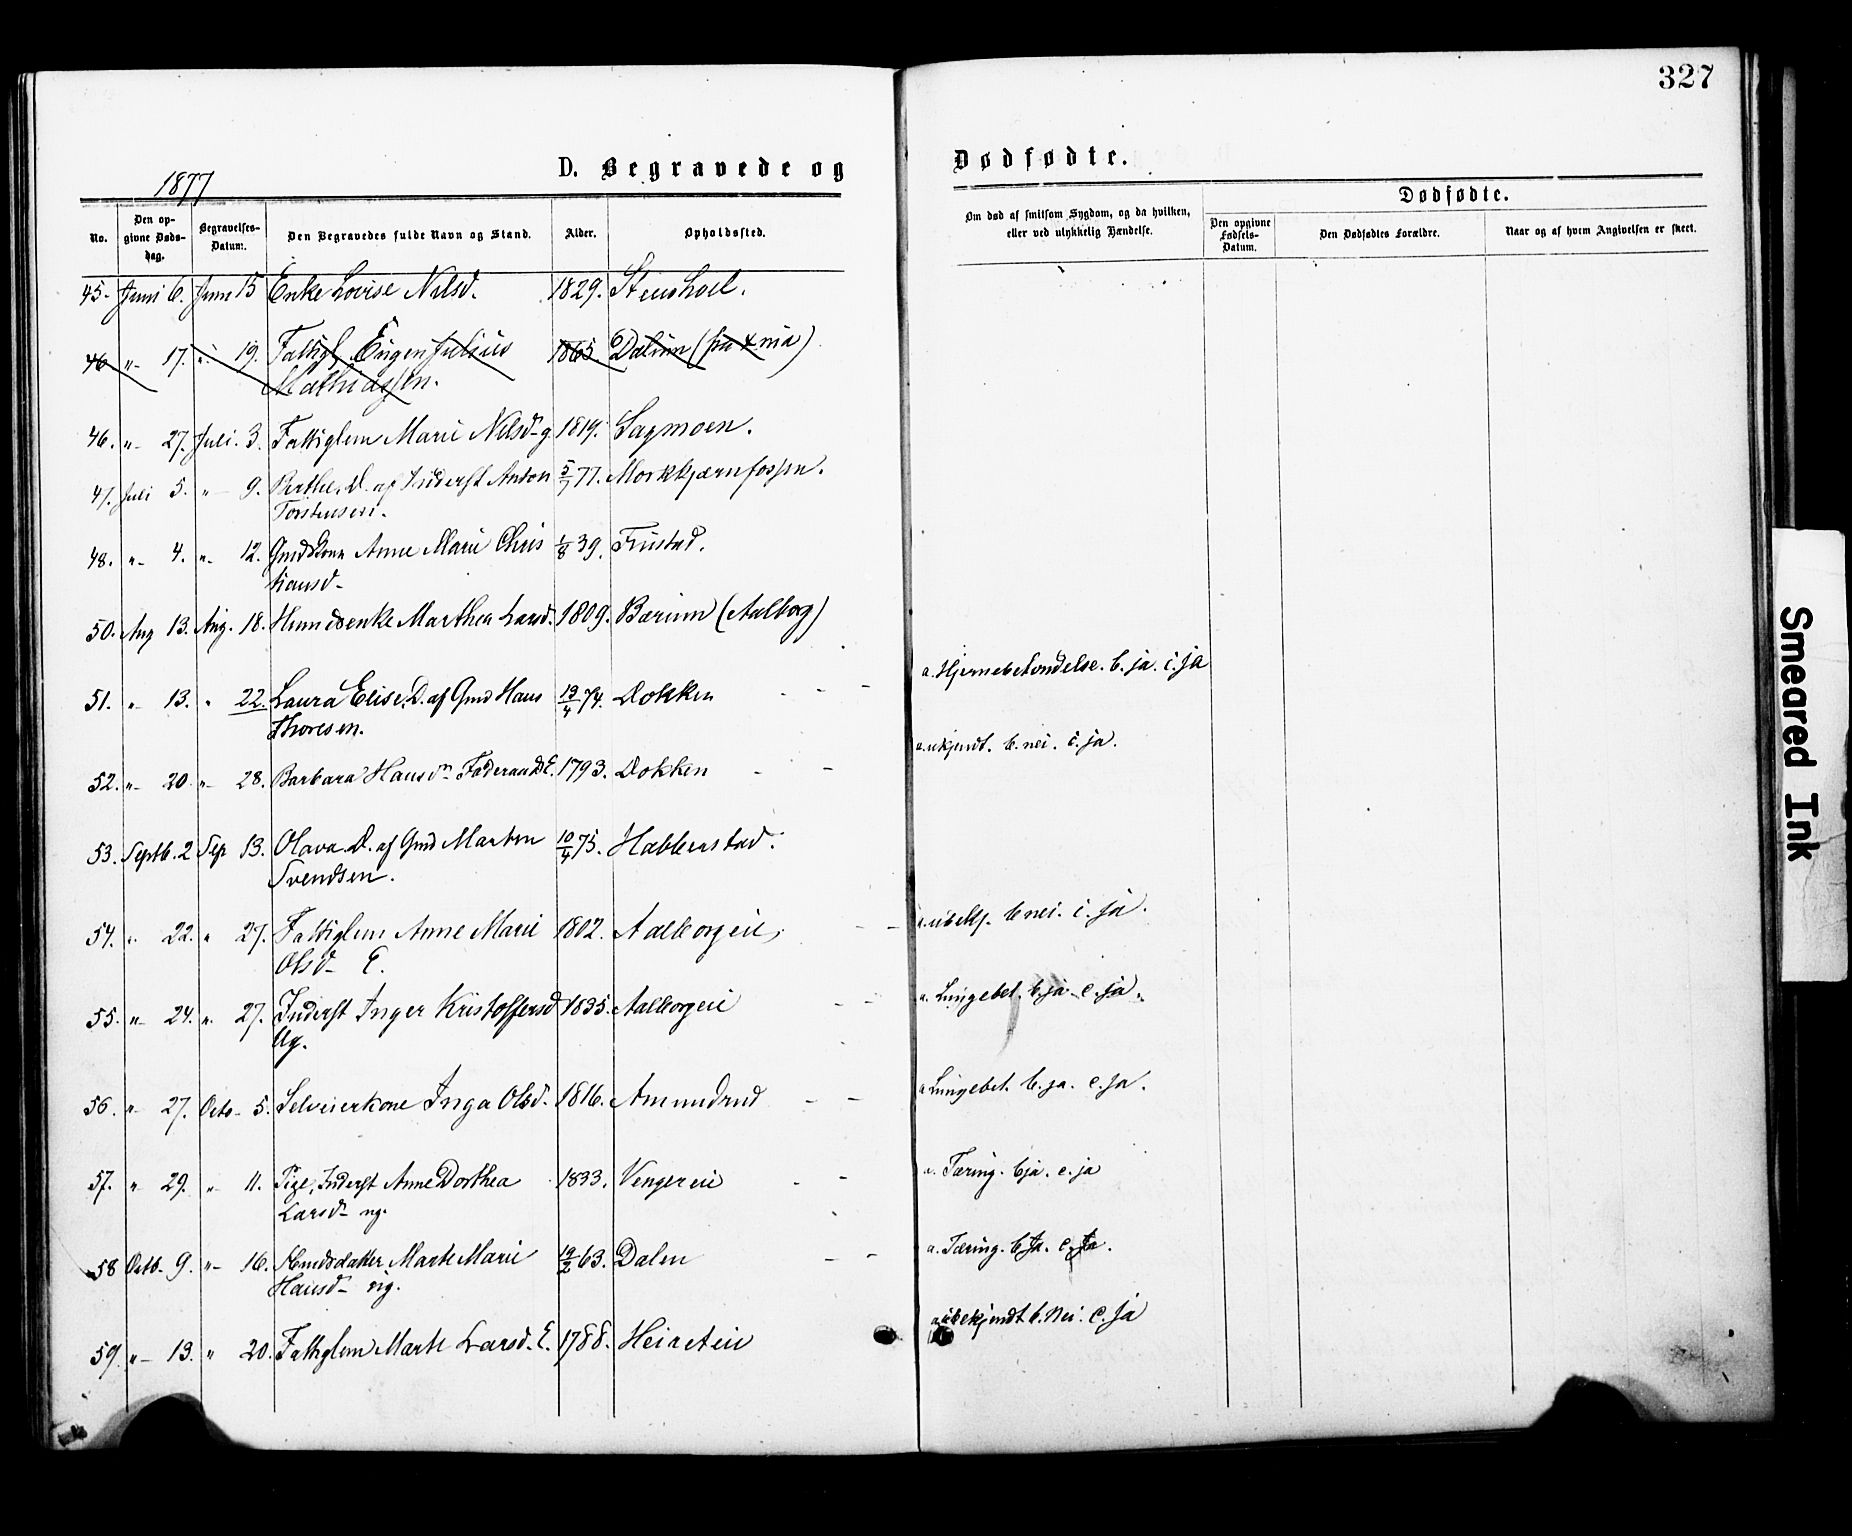 327
1877
D. Begravede og Dødfødte.
Dødfødte.
No.
Den opgivne Dødsdag.
Begravelses-Datum.
Den Begravedes fulde Navn og Stand.
Alder.
Opholdssted.
Om død af smitsom Sygdom, og da hvilken, eller ved ulykkelig Hændelse.
Den opgivne Fødsels-Datum.
Den Dødfødtes Forældre.
Naar og af hvem Angivelsen er skeet.
45. Juni 6. Juni 15 Enke Lovise Nilsd. 1829. Stenshol.
46 "- 17. " 19. Fattigl. Eugen Julius 1865. Dalinn (fra Xnia)
Mathiassen.
46. "- 27. Juli. 3. Fattiglem Marie Nilsd. g. 1819. Sagmoen.
47. Juli 5. "- 9. Berthe, D. af Inderst Anton 5/7 77. Morkkjærnfossen.
Torstensen.
48. "- 4. "- 12. Gmdskone Anne Marie Chris 1/8 39. Frustad.
tiansd-
50. Aug 13. Aug. 18. Huusmdsenke Marthea Larsd. 1809. Bærum (Aalborg)
51. "- 13. " 22. Laura Elise, D. af Gmd Hans 19/4 74. Dokken - - - a. Hjernebetændelse. b. ja. c. ja
Thoresen.
52. "- 20 "- 28. Barbara Hansdn Føderaads E. 1793. Dokken - - a. ukjendt. b. nei. c. ja.
53. Septb. 2 Sep 13. Olava D. af Gmd Marten 10/4 75. Habberstad.
Svendsen.
54. " 22. " 27. Fattiglem Anne Marie 1802. Aalborgeie, - - a. ubekj. b nei. c. ja.
Olsd- E.
55. "- 24. " 27. Inderst Inger Kristoffersd 1835. Aalborgeie - - a. Lungebet. b. ja. c. ja.
Ug.
56. "- 27. Octb- 5. Selveierkone Inga Olsd. 1816. Amundrud - - a Lungebet. b. ja. c. ja.
57. " 29. "- 11. Pige, Inderst Anne Dorthea 1833. Vengereie - - a. Tæring. b ja. c. ja
Larsd- ug.
58 Octb. 9. "- 16. Hmdsdatter Marte Marie 19/2 63. Dalen - - a. Tæring. b ja. c. ja.
Hansd- ug.
59. "- 13. " 20. Fattiglem Marte Larsd. E. 1788. Heinteie a. ubekjendt b. Nei. c. ja
Smeared Ink